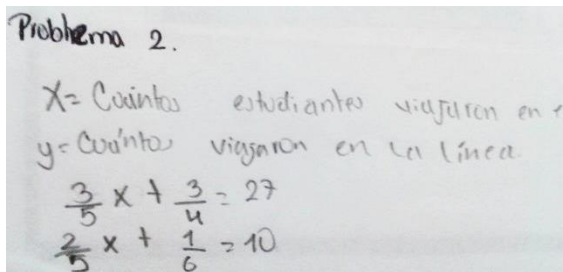 Problema 2.
X= Cuántos estudiantes viajaron en
y= Cuántos viajaron en la línea.
3/5 x + 3/4 = 27
2/5 x + 1/6 = 10